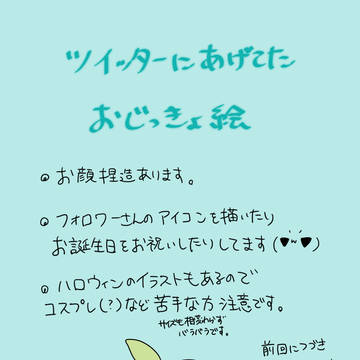 ツイッターにあげてた
おじっきょ絵
お顔捏造あります。
フォロワーさんのアイコンを描いたり
お誕生日をお祝いしたりしてます
ハロウィンのイラストもあるので
コスプレ(?)など苦手な方注意です。
サイズも相変わらず
バラバラです。
前回につづき